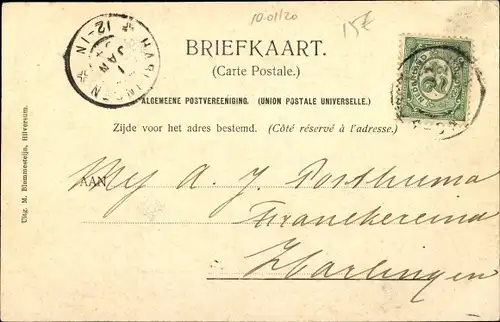 10-01/20
15€
BRIEFKAART.
(Carte Postale.)
ALGEMEENE POSTVEREENIGING. (UNION POSTALE UNIVERSELLE.)
Zijde voor het adres bestemd. (Côté réservé à l'adresse.)
AAN Mej A. J. Posthuma
Franekereind
Harlingen
HARLINGEN
12-1N
1
JAN
NEDERLAND
2½
Uitg. M. Blummesteijn, Hilversum.